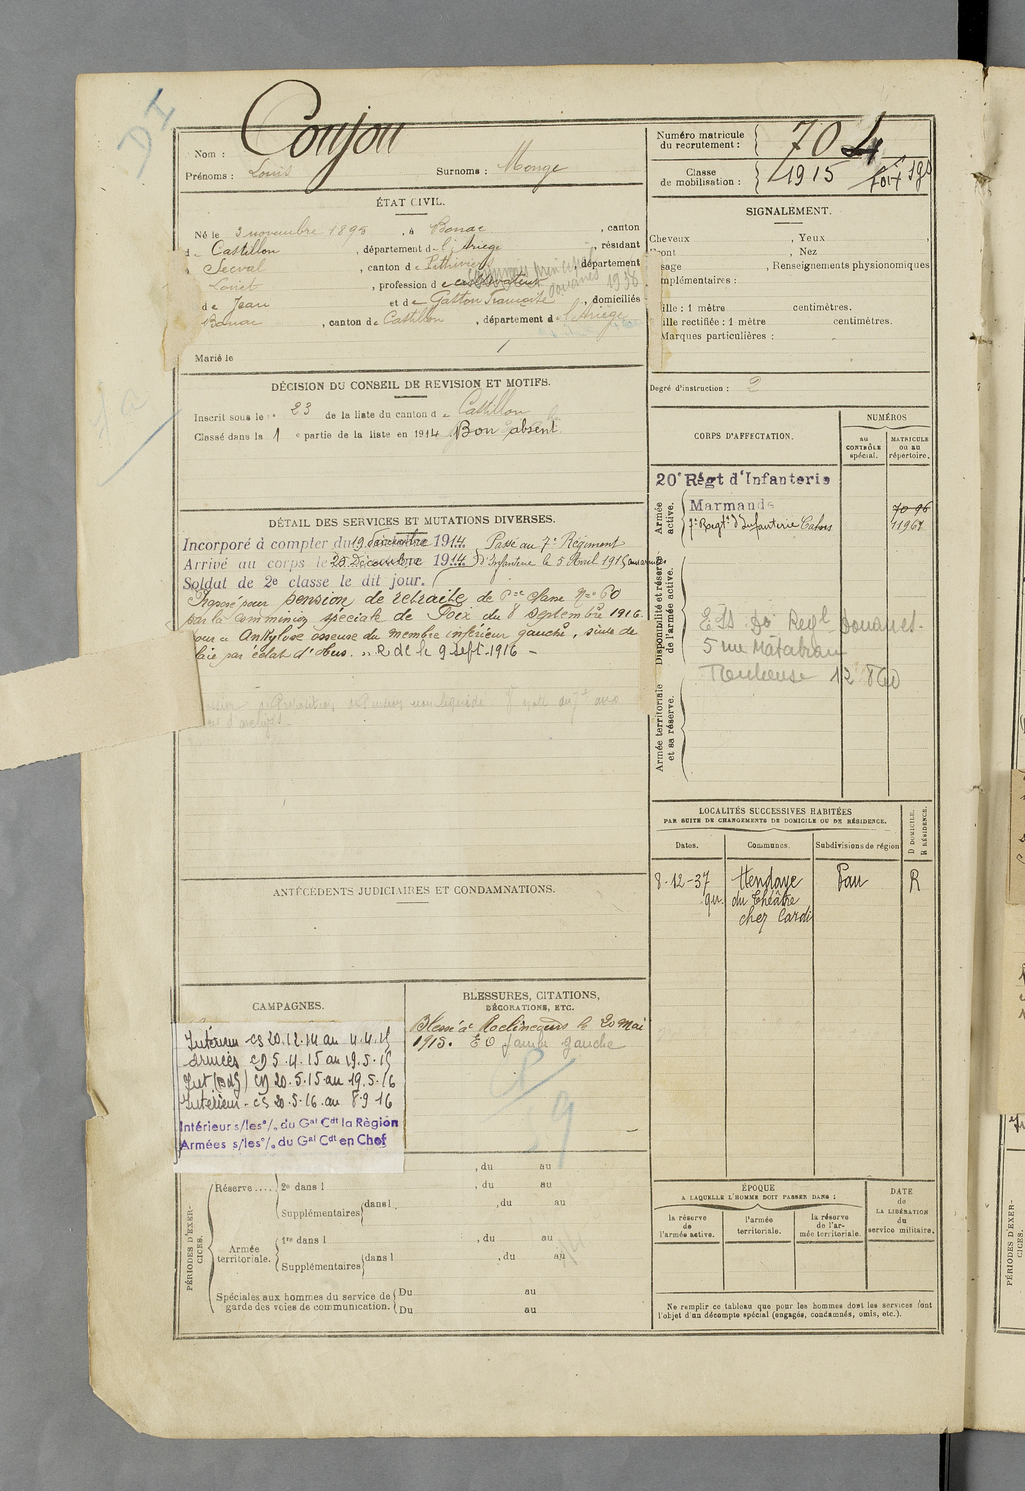 DI
Nom : Coujou
Prénoms : Louis Surnoms : Monge
ÉTAT CIVIL.
Né le 3 novembre 1895, à Bonac, canton
d Castillon, département de l'Ariège, résidant
à Secval, canton de Pithiviers, département
Loiret, profession de
douanes 1938
de Jean et de Gaston Françoise, domiciliés
Bonac, canton de Castillon, département de l'Ariège
Marié le
DÉCISION DU CONSEIL DE REVISION ET MOTIFS.
Inscrit sous le n° 23 de la liste du canton de Castillon
Classé dans la 1 e partie de la liste en 1914 Bon absent
DÉTAIL DES SERVICES ET MUTATIONS DIVERSES.
Incorporé à compter du 19 Décembre 1914. Passé au 7e Régiment
Arrivé au corps le 20 Décembre 1914 d'Infanterie le 5 Avril 1915
Soldat de 2e classe le dit jour.
Proposé pour pension de retraite de 5e classe No 60
par la Commission spéciale de Foix du 8 septembre 1916
pour « Ankylose osseuse du membre inférieur gauche, suite de
plaie par éclat d'obus. » R.d.l. le 9 Sept. 1916 -
ANTÉCÉDENTS JUDICIAIRES ET CONDAMNATIONS.
CAMPAGNES.
Intérieur CS 20.12.14 au 4.4.15
Armées CD 5.4.15 au 19.5.15
Int (BdG) CD 20.5.15 au 19.5.16
Intérieur - CS 20.5.16 au 8 9 16
Intérieur s/les °/. du Gal Cdt la Région
Armées s/les °/. du Gal Cdt en Chef
BLESSURES, CITATIONS,
DÉCORATIONS, ETC.
Blessé à Roclincourt le 20 mai
1915. E O Jambe gauche
PÉRIODES D'EXERCICES.
, du au
Réserve.... 2e dans l , du au
Supplémentaires dans l , du au
Armée territoriale. 1re dans l , du au
Supplémentaires dans l , du au
Spéciales aux hommes du service de garde des voies de communication. Du au
Du au
Numéro matricule
du recrutement : 704
Classe
de mobilisation : 1915
SIGNALEMENT.
Cheveux , Yeux ,
Front , Nez
sage , Renseignements physionomiques
mplémentaires :
ille : 1 mètre centimètres.
ille rectifiée : 1 mètre centimètres.
Marques particulières :
Degré d'instruction : 2
CORPS D'AFFECTATION.
NUMÉROS
au
CONTRÔLE
spécial.
MATRICULE
ou au
répertoire.
Armée active.
20e Régt d'Infanterie
Marmande 70 96
7e Regt d'Infanterie Cahors 11967
Disponibilité et réserve de l'armée active.
Ets Do Regl Douanes.
5 rue Matabiau
Toulouse 12 860
Armée territoriale et sa réserve.
LOCALITÉS SUCCESSIVES HABITÉES
PAR SUITE DE CHANGEMENTS DE DOMICILE OU DE RÉSIDENCE.
Dates. Communes. Subdivisions de région D DOMICILE. R RÉSIDENCE.
8-12-37 Hendaye Pau R
qu. du Théâtre
chez Cardi
ÉPOQUE
A LAQUELLE L'HOMME DOIT PASSER DANS :
la réserve
de
l'armée active.
l'armée
territoriale.
la réserve
de l'ar-
mée territoriale.
DATE
de
LA LIBÉRATION
du
service militaire.
Ne remplir ce tableau que pour les hommes dont les services font
l'objet d'un décompte spécial (engagés, condamnés, omis, etc.).
PÉRIODES D'EXER-
CICES.